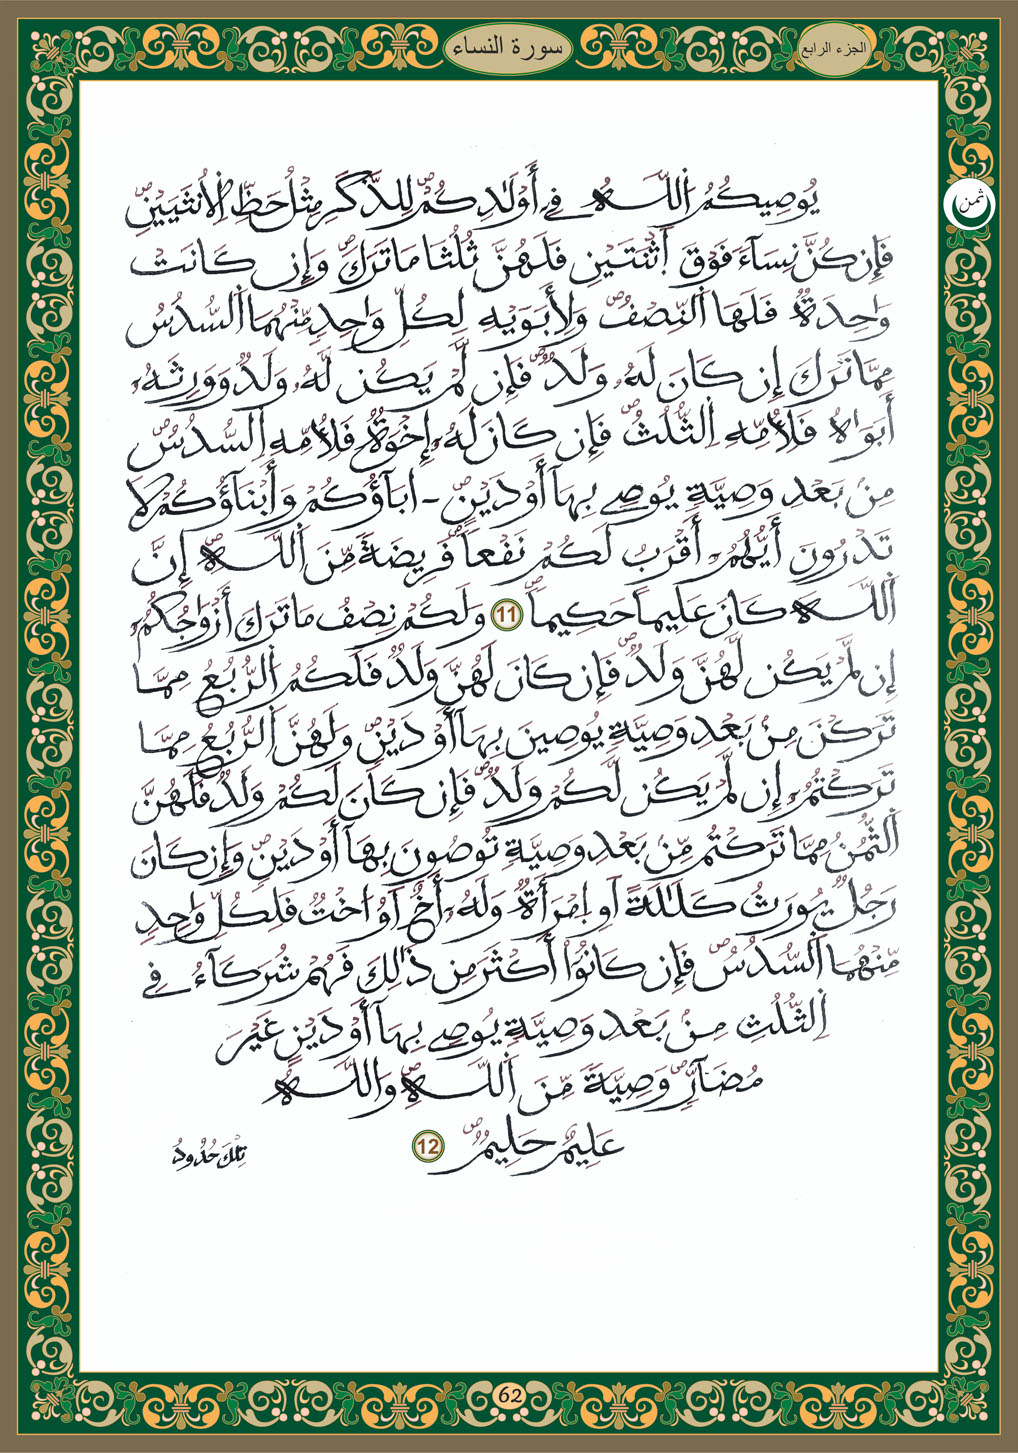 سورة النساء
الجزء الرابع
ثمن
يُوصِيكُمُ اُللَّهُ فِي أَوْلَٰدِكُمْ لِلذَّكَرِ مِثْلُ حَظِّ اِلْأُنثَيَيْنِ
فَإِن كُنَّ نِسَآءً فَوْقَ اَثْنَتَيْنِ فَلَهُنَّ ثُلُثَا مَا تَرَكَ وَإِن كَانَتْ
وَٰحِدَةٌ فَلَهَا اَلنِّصْفُ وَلِأَبَوَيْهِ لِكُلِّ وَٰحِدٍ مِّنْهُمَا اَلسُّدُسُ
مِمَّا تَرَكَ إِن كَانَ لَهُۥ وَلَدٌ فَإِن لَّمْ يَكُن لَّهُۥ وَلَدٌ وَوَرِثَهُۥ
أَبَوَٰهُ فَلِأُمِّهِ اِلثُّلُثُ فَإِن كَانَ لَهُۥ إِخْوَةٌ فَلِأُمِّهِ اِلسُّدُسُ
مِنۢ بَعْدِ وَصِيَّةٍ يُوصِے بِهَآ أَوْ دَيْنٍ ـ ابَآؤُكُمْ وَأَبْنَآؤُكُمْ لَا
تَدْرُونَ أَيُّهُمْ أَقْرَبُ لَكُمْ نَفْعاً فَرِيضَةً مِّنَ اَللَّهِ إِنَّ
اَللَّهَ كَانَ عَلِيماً حَكِيماً 11 وَلَكُمْ نِصْفُ مَا تَرَكَ أَزْوَٰجُكُمْ
إِن لَّمْ يَكُن لَّهُنَّ وَلَدٌ فَإِن كَانَ لَهُنَّ وَلَدٌ فَلَكُمُ اُلرُّبُعُ مِمَّا
تَرَكْنَ مِنۢ بَعْدِ وَصِيَّةٍ يُوصِينَ بِهَآ أَوْ دَيْنٍ وَلَهُنَّ اَلرُّبُعُ مِمَّا
تَرَكْتُمُۥ إِن لَّمْ يَكُن لَّكُمْ وَلَدٌ فَإِن كَانَ لَكُمْ وَلَدٌ فَلَهُنَّ
اَلثُّمُنُ مِمَّا تَرَكْتُم مِّنۢ بَعْدِ وَصِيَّةٍ تُوصُونَ بِهَآ أَوْ دَيْنٍ وَإِن كَانَ
رَجُلٌ يُورَثُ كَلَٰلَةً أَوِ اِمْرَأَةٌ وَلَهُۥ أَخٌ أَوُ اخْتٌ فَلِكُلِّ وَٰحِدٍ
مِّنْهُمَا اَلسُّدُسُ فَإِن كَانُوٓاْ أَكْثَرَ مِن ذَٰلِكَ فَهُمْ شُرَكَآءُ فِي
اِلثُّلُثِ مِنۢ بَعْدِ وَصِيَّةٍ يُوصِے بِهَآ أَوْ دَيْنٍ غَيْرَ
مُضَآرٍّ وَصِيَّةً مِّنَ اَللَّهِ وَاللَّهُ
عَلِيمٌ حَلِيمٌ 12
تِلْكَ حُدُودُ
62